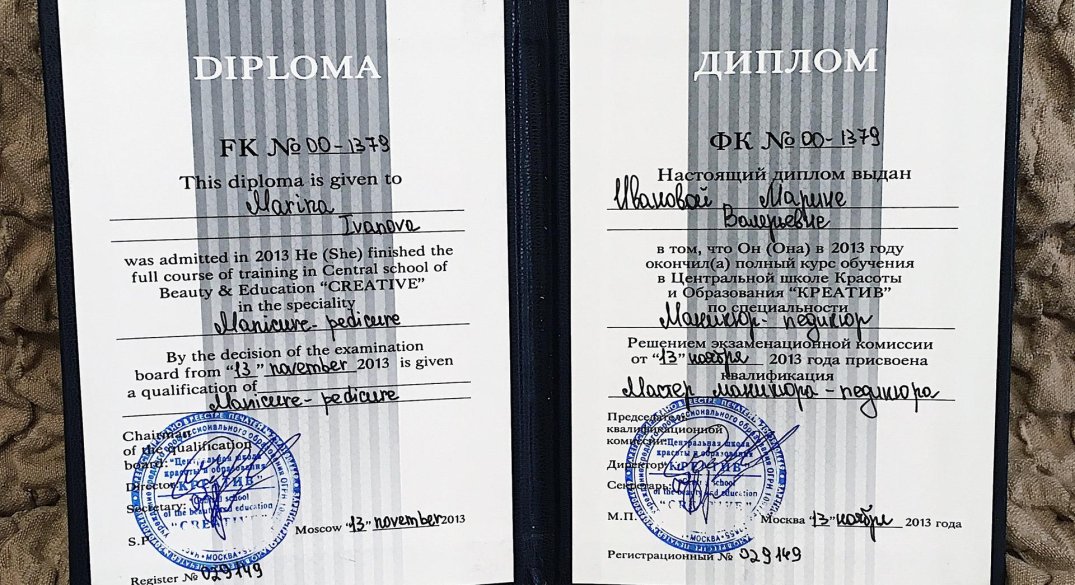 DIPLOMA
FK № 00-1379
This diploma is given to
Marina
Ivanova
was admitted in 2013 He (She) finished the
full course of training in Central school of
Beauty & Education “CREATIVE”
in the speciality
Manicure-pedicure
By the decision of the examination
board from “13” november 2013 is given
a qualification of
Manicure-pedicure
Chairman
of the qualification
board:
Director
Secretary:
S.P.
Moscow “13” november 2013
Register № 029149
ДИПЛОМ
ФК № 00-1379
Настоящий диплом выдан
Ивановой Марине
Валерьевне
в том, что Он (Она) в 2013 году
окончил(а) полный курс обучения
в Центральной школе Красоты
и Образования “КРЕАТИВ”
по специальности
Маникюр-педикюр
Решением экзаменационной комиссии
от “13” ноября 2013 года присвоена
квалификация
Мастер маникюра-педикюра
Председатель
квалификационной
комиссии:
Директор
Секретарь:
М.П.
Москва “13” ноября 2013 года
Регистрационный № 029149
"Центральная школа
красоты и образования
"КРЕАТИВ"
school
of the beauty and education
МОСКВА